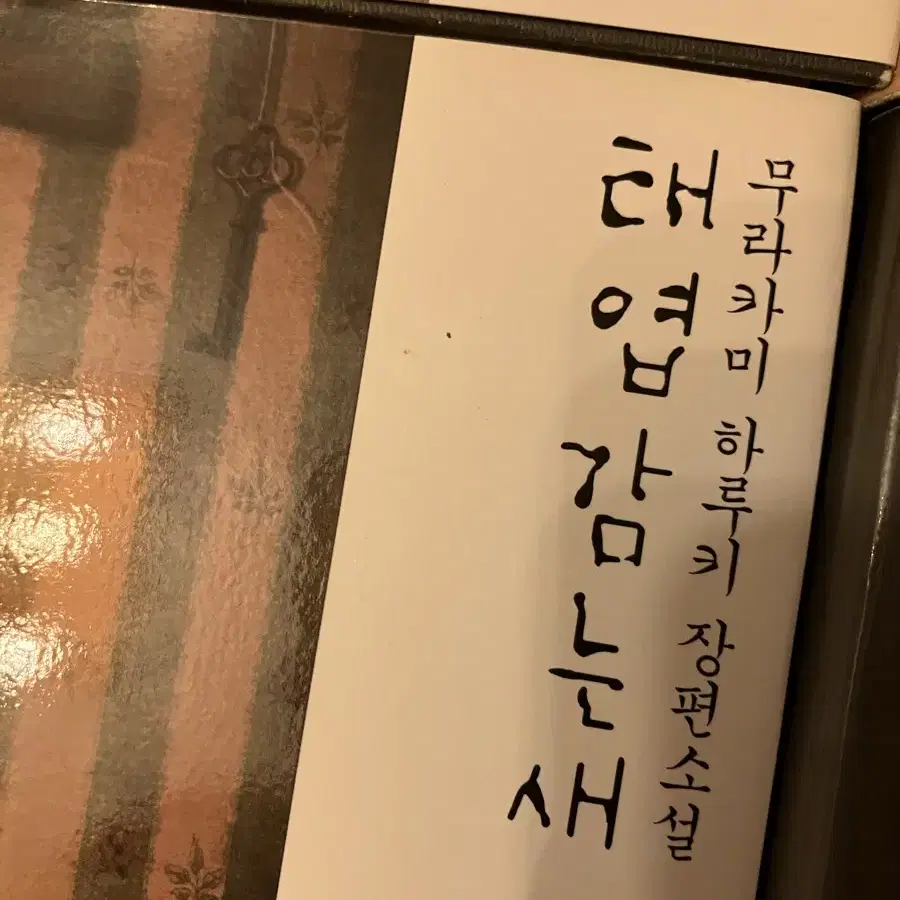 무라카미 하루키 장편소설
태엽 감는 새